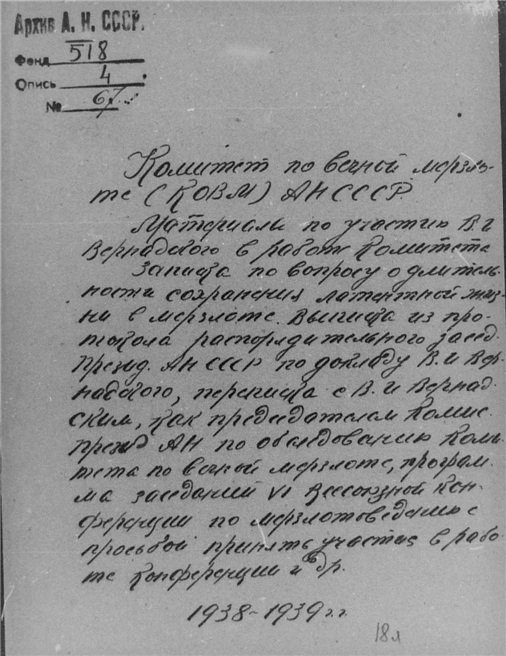 Архив А. Н. СССР.
Фонд 518
Опись 4
№ 67
Комитет по вечной мерзло-
те (КОВМ) АН СССР.
Материалы по участию В.И
Вернадского в работе Комитета
Записка по вопросу о длитель-
ности сохранения латентной жиз-
ни в мерзлоте. Выписка из про-
токола распорядительного засед.
Презид. АН СССР по докладу В.И Вер-
надского, переписка с В.И Вернад-
ским, как председателем Комис.
презид АН по обследованию Коми-
тета по вечной мерзлоте, програм-
ма заседаний VI Всесоюзной Кон-
ференции по мерзлотоведению с
просьбой принять участие в рабо-
те конференции и др.
1938-1939 г.г.
18 л